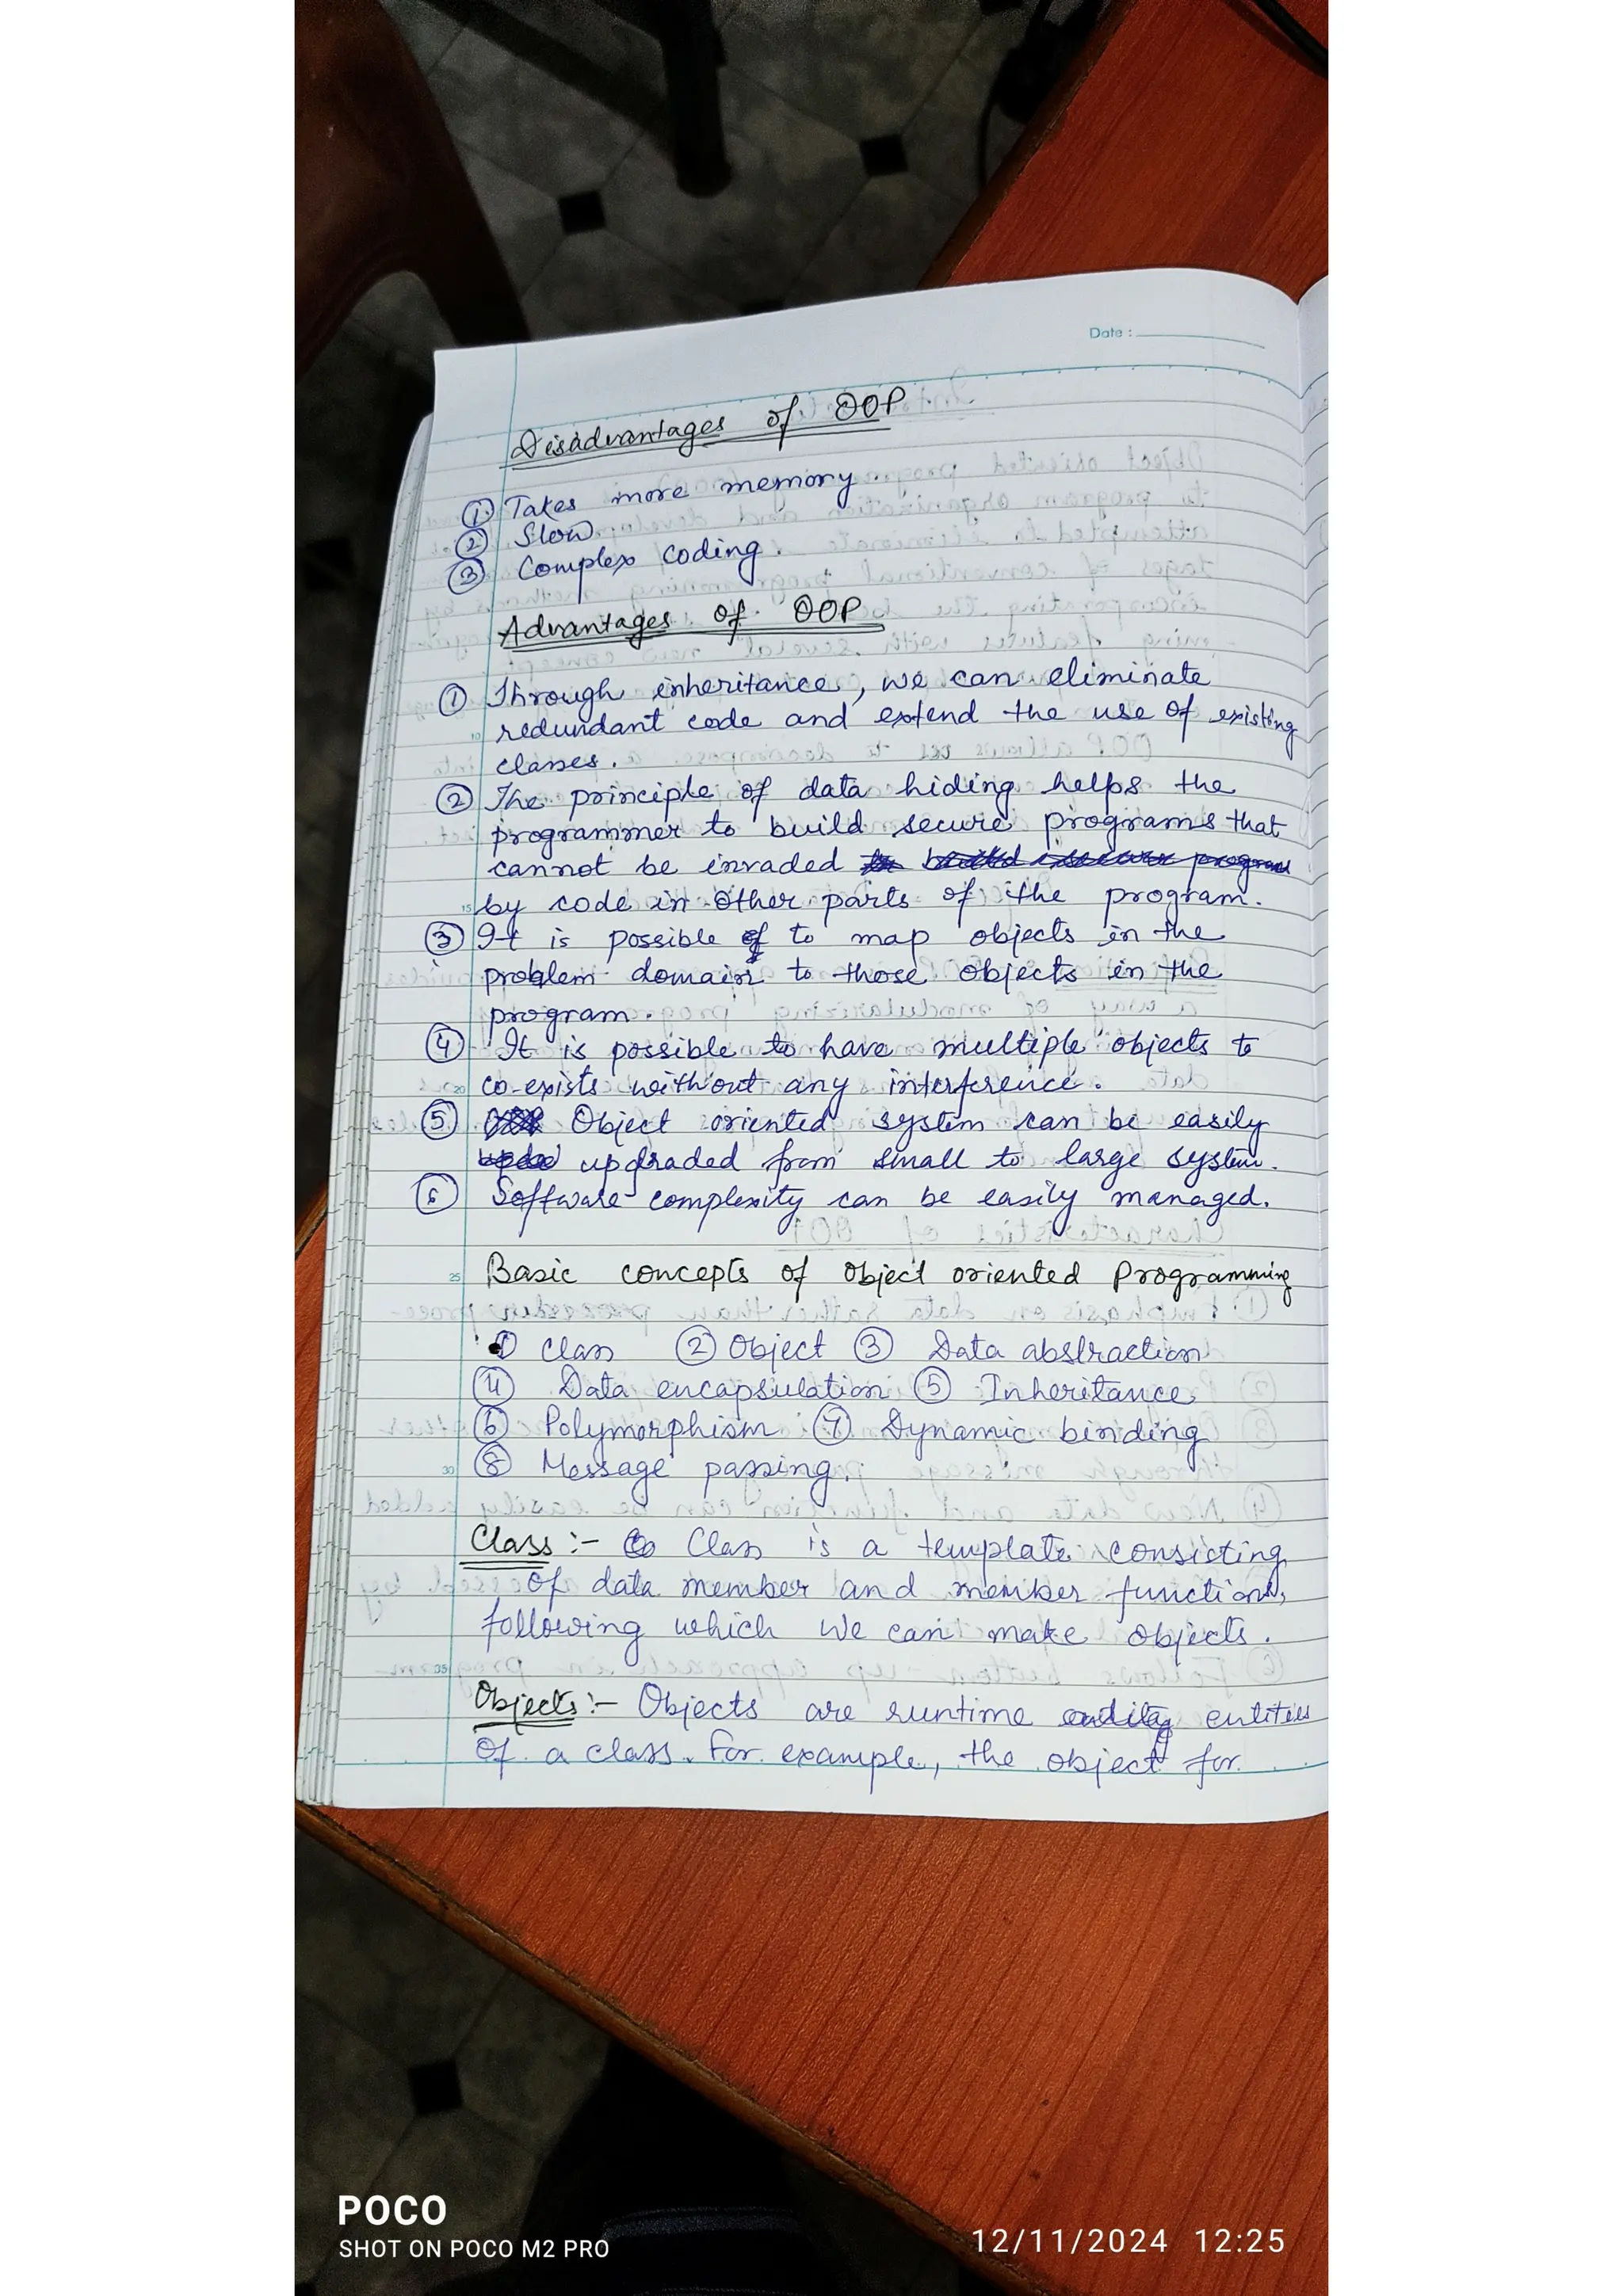 Date :
Disadvantages of OOP
① Takes more memory.
② Slow.
③ Complex coding.
Advantages of OOP
① Through inheritance, we can eliminate
redundant code and extend the use of existing
classes.
② The principle of data hiding helps the
programmer to build secure programs that
cannot be invaded
by code in other parts of the program.
③ It is possible to map objects in the
problem domain to those objects in the
program.
④ It is possible to have multiple objects to
co-exists without any interference.
⑤ Object oriented system can be easily
upgraded from small to large system.
⑥ Software complexity can be easily managed.
Basic concepts of Object oriented Programming
① Class ② Object ③ Data abstraction
④ Data encapsulation ⑤ Inheritance
⑥ Polymorphism ⑦ Dynamic binding
⑧ Message passing.
Class :- Class is a template consisting
of data member and member functions,
following which we can make objects.
Objects :- Objects are runtime entities
of a class. For example, the object for
POCO
SHOT ON POCO M2 PRO
12/11/2024 12:25